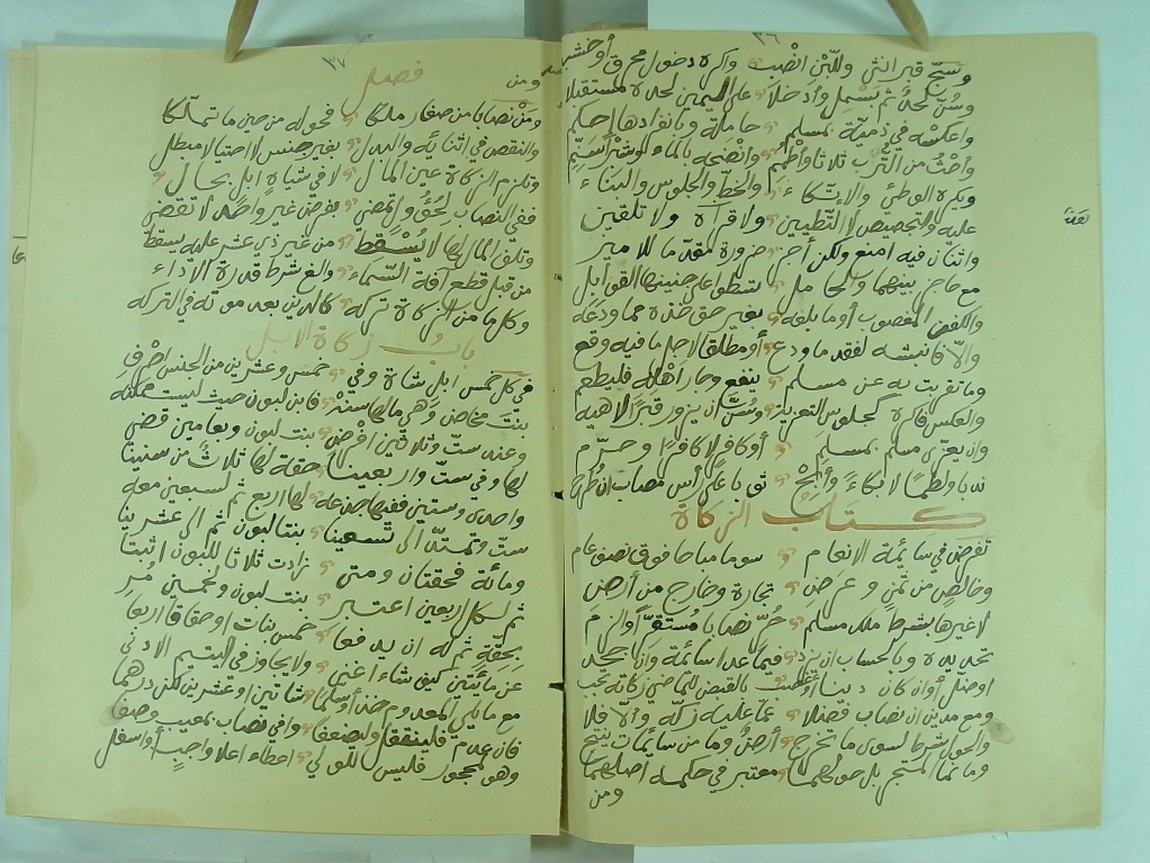 ٣٦
وسجّ قبر انثى وللّبْنِ انْصِب واكره دخول محرق أو خشب
وسُنّ لحدٌ ثم بَسْمل وأدخلا على اليمين لحده مستقبلا
واعكسه في ذميّة بمسلم حاملة وبانفرادها احكم
وأحثُ من التُّرب ثلاثا وأطُمْ وانْضحه بالماء وشبرًا سَنِّم
ويكره الوطئ والإتّكاء والخطّ والجلوس والبناء
عليه والتجصيص لا التطيين ولا قرآة ولا تلقين
واثنان فيه امنع ولكن أجز ضرورة مقدّما للاميز
مع حاجز بينهما والحامل يسطو على جنينها القوابل
والكفن المغصوب أو ما بلعه بغير حق خذه مما ودعه
والّا فانبشه لفقد ما ودع أو مطلقا لاجل ما فيه وقع
وما تقربت به عن مسلم ينفع وجار اهله فليطعم
والعكس فاكره كجلوس التعزية وسُنَّ ان يزور قبرًا لاهيه
وان يعزى مسلم بمسلم أو كافر لا كافرًا وحرّم
ندبا ولطمًا لا بكاءً وأبِحْ ثوبا على رأس مصاب ان طُرح
كتاب الزكاة
تفرض في سائمة الانعام سوما مباحا فوق نصف عام
وخالصٍ من ثمنٍ وعرضِ تجارة وخارج من أرضِ
لا غيرها بشرط ملك مسلم حُرّ نصابا مُستقرّا والزم
تحديده وبالحساب ان يزد فيما عدا سائمة وان جحد
اوضلّ أو ان كان دينا أو غصب بالقبض للماضي زكاته تجب
ومع مدين ان نصاب فضلا عمّا عليه زكّه والّا فلا
والحول شرط لسوى ما تخرج أرضٌ وما من سائمات ينتج
وما نما المتجر بل حولهما معتبر في حكمه اصلهما
ومن
٣٧
فصل
ومَنْ نصابا من صغار ملكا فحوله من حين ما تملّكا
والنقص في اثنائه والبدل بغير جنس لا احتيالا مبطل
وتلزم الزكاة عين المال لا في شياه ابل بحال
ففي النصاب لحُقُوْلٍ تمضي بفرض غير واحد لا تقضي
وتلف المال لها لا يُسْقط من غير ذي عشر عليه يسقط
من قبل قطع آفة السّماء والغ شرط قدرة الاداء
وكل ما من الزكاة تركه كالدين بعد موته في التركه
بابُ زكاة الابل
في كل خمس ابل شاة وفي خمس وعشرين من الجنس اصرف
بنتَ مخاض وهي ما لها سنهْ فابن لبون حيث ليست ممكنه
وعند ستّ وثلاثين افرض بنت لبون وبعامين قضي
لها وفي ستّ واربعينا حقة لها ثلاثٌ من سنينا
واحدى وستين ففيها جذعه لها اربع ثم لسبعين معه
ستّ وتمتدّ الى تسعينا بنتا لبون ثم الى عشرينا
ومائة فحقتان ومتى زادت ثلاثا للبون اثبتا
ثم لكل اربعين اعتبر بنت لبون ولخمسين مُرِ
بحِقّةٍ ثم له ان يدفعا خمس بنات او حقاقا اربعا
عن مائتين كيف شاء اغني ولا يجاوز في اليتيم الادنى
مع ما يلي المعدوم خذ أو سلّما شاتين او عشرين لكن درهما
فان عدم فلينتقل وليضعفا وافي نصاب بمعيب وصفا
وهو لمحجور فليس للولي اعطاء اعلا واجبٍ أو اسفل